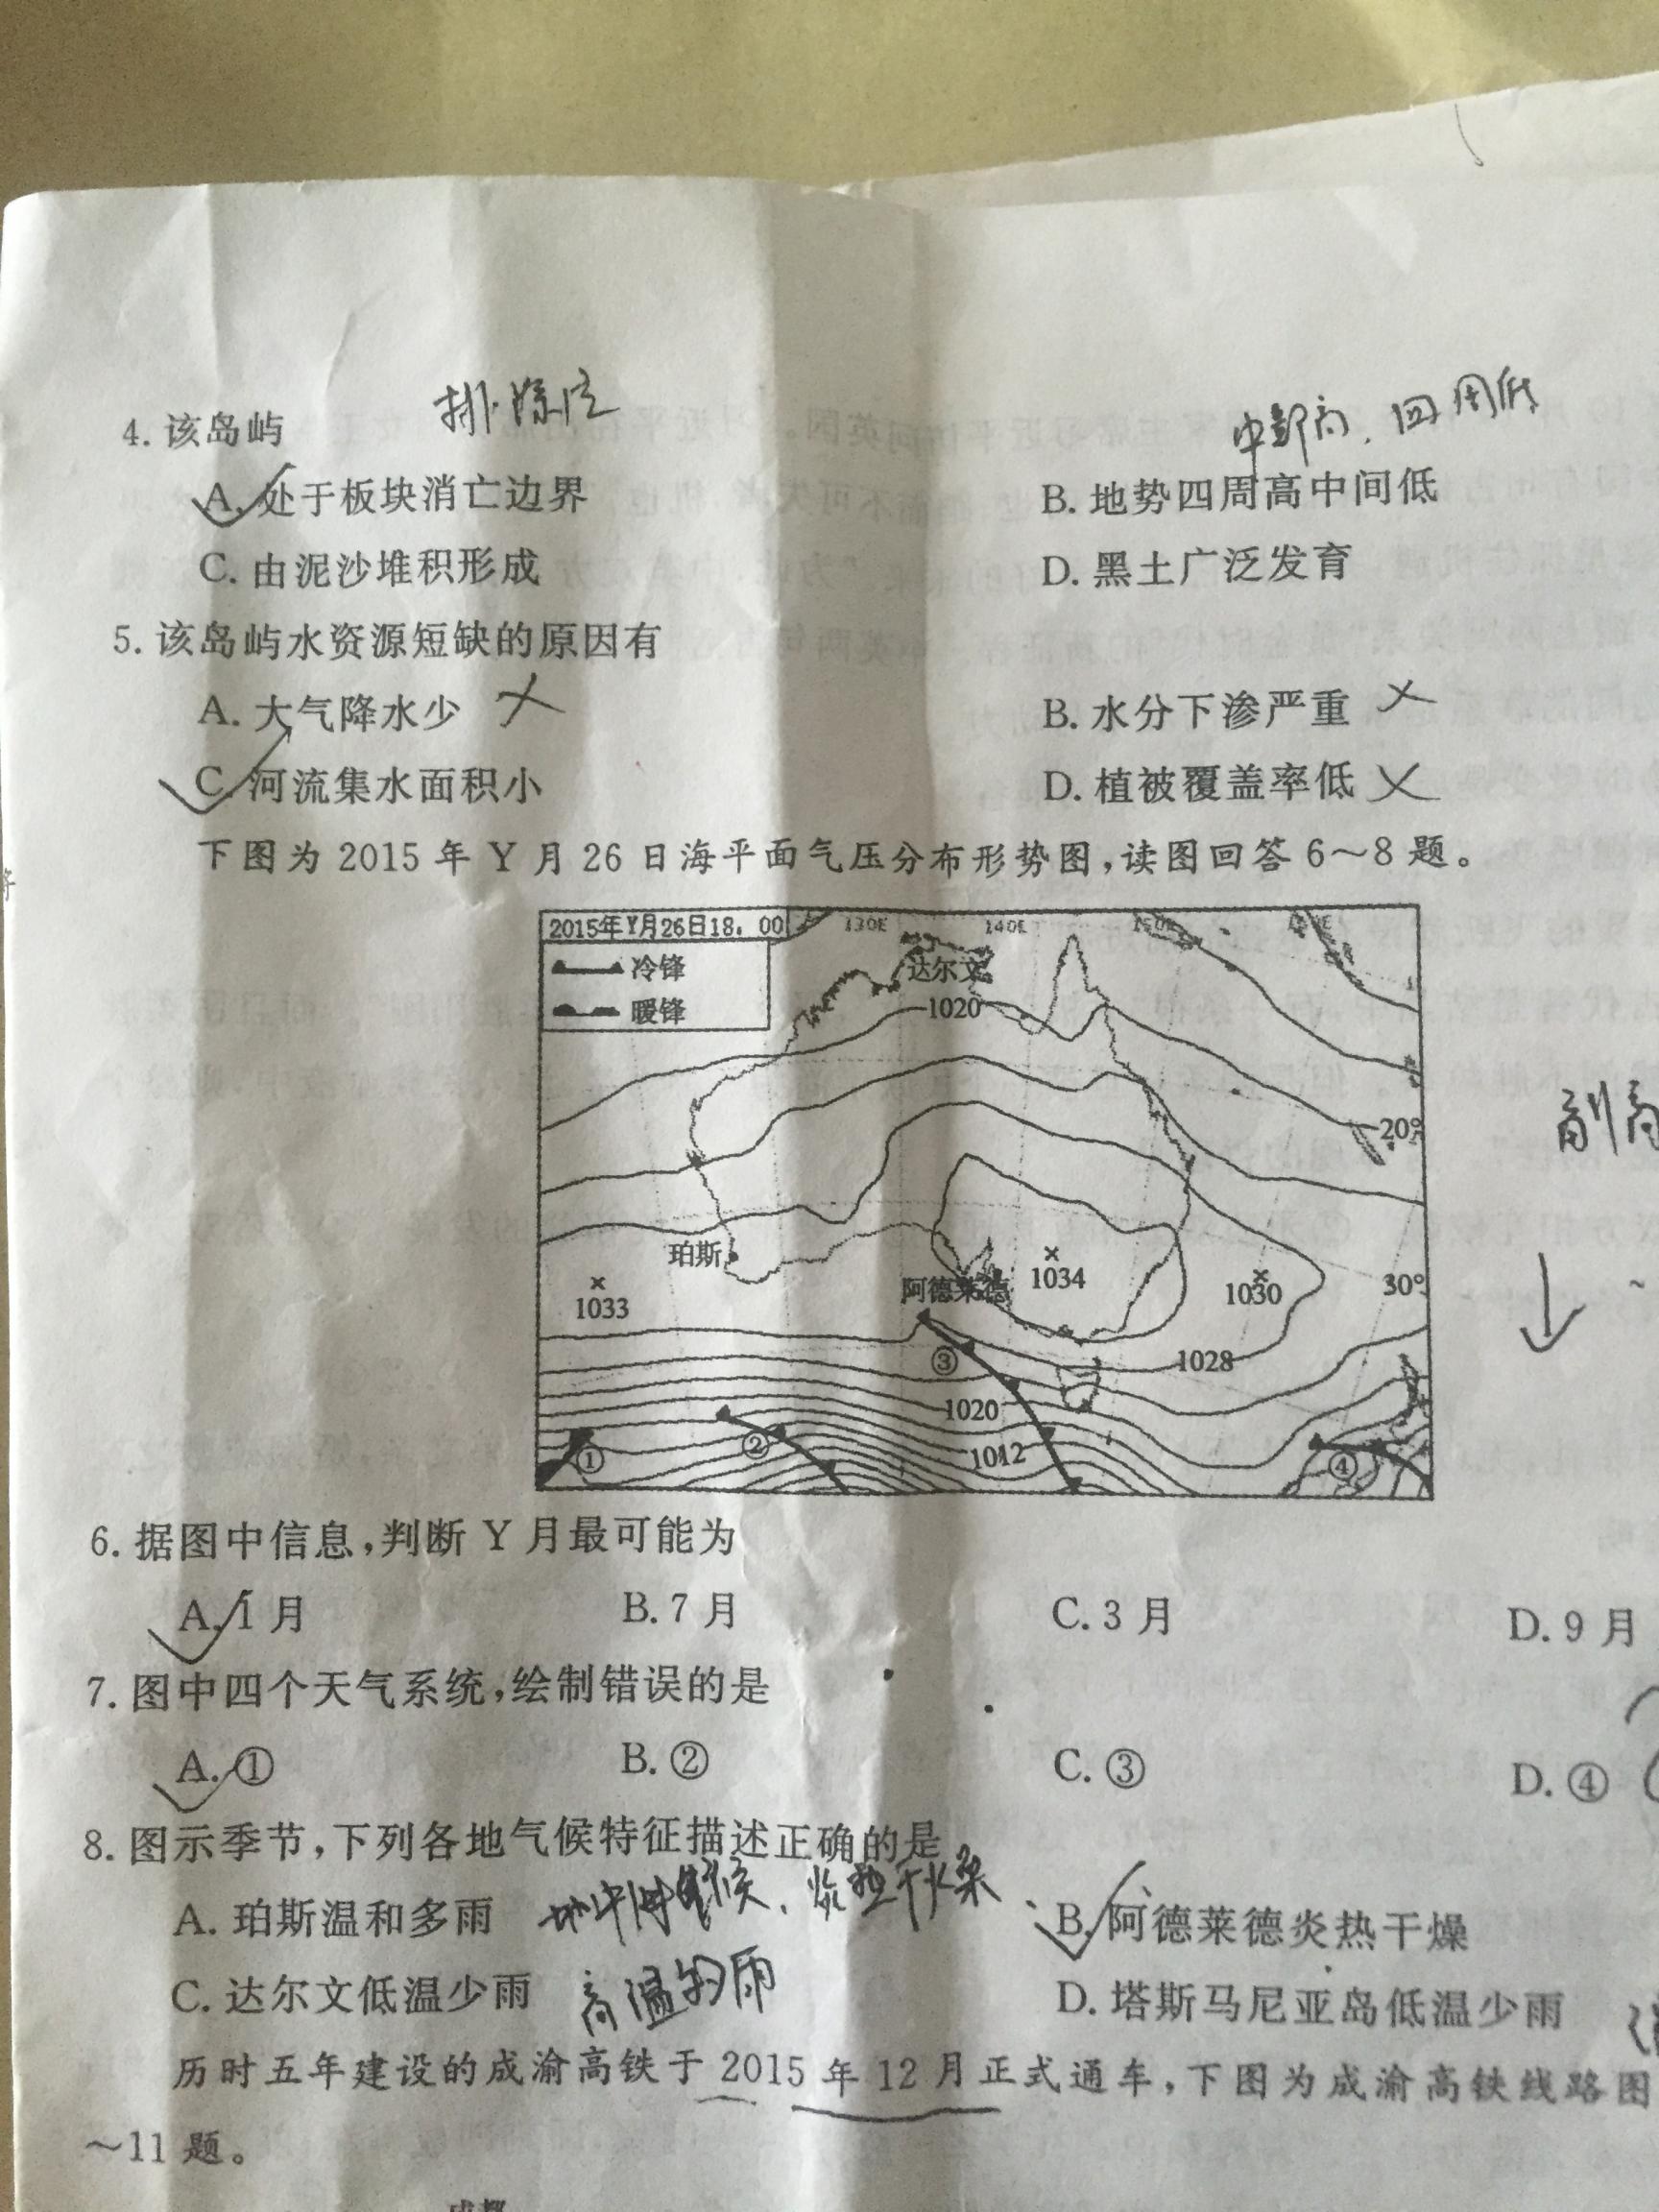 排除法
中部高，四周低
4. 该岛屿
A. 处于板块消亡边界 B. 地势四周高中间低
C. 由泥沙堆积形成 D. 黑土广泛发育
5. 该岛屿水资源短缺的原因有
A. 大气降水少 B. 水分下渗严重
C. 河流集水面积小 D. 植被覆盖率低
下图为 2015 年 Y 月 26 日海平面气压分布形势图，读图回答 6～8 题。
2015年Y月26日18：00 130E 140E 150E
冷锋 达尔文
暖锋 1020
副高
20°
珀斯
1033 阿德莱德 1034 1030 30°
③ 1028
1020
① ② 1012 ④
6. 据图中信息，判断 Y 月最可能为
A. 1 月 B. 7 月 C. 3 月 D. 9 月
7. 图中四个天气系统，绘制错误的是
A. ① B. ② C. ③ D. ④
8. 图示季节，下列各地气候特征描述正确的是
A. 珀斯温和多雨 地中海气候、炎热干燥 B. 阿德莱德炎热干燥
C. 达尔文低温少雨 高温多雨 D. 塔斯马尼亚岛低温少雨
历时五年建设的成渝高铁于 2015 年 12 月正式通车，下图为成渝高铁线路图
～11 题。
成都